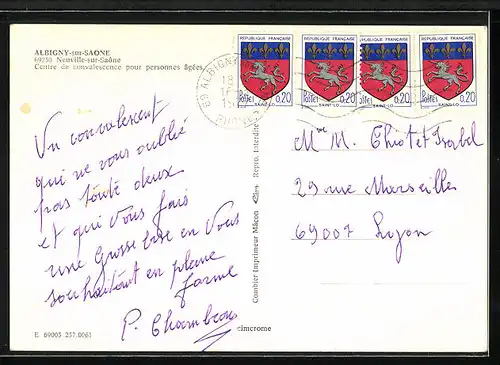 ALBIGNY-sur-SAONE
69250 Neuville-sur-Saône
Centre de convalescence pour personnes âgées
RÉPUBLIQUE FRANÇAISE
Postes 0,20
SAINT-LO
RÉPUBLIQUE FRANÇAISE
Postes 0,20
SAINT-LO
RÉPUBLIQUE FRANÇAISE
Postes 0,20
SAINT-LO
RÉPUBLIQUE FRANÇAISE
Postes 0,20
SAINT-LO
69 ALBIGNY
RHONE
Un convalescent
qui ne vous oublié
pas toute deux
et qui Vous fais
une Grosse bise en Vous
souhaitant en pleine
forme
P. Chambron
Combier Imprimeur Mâcon Repro. Interdite
Me M. Thiotet Isabel
29 rue Marseilles
69007 Lyon
E 69003 257.0061
cimcrome